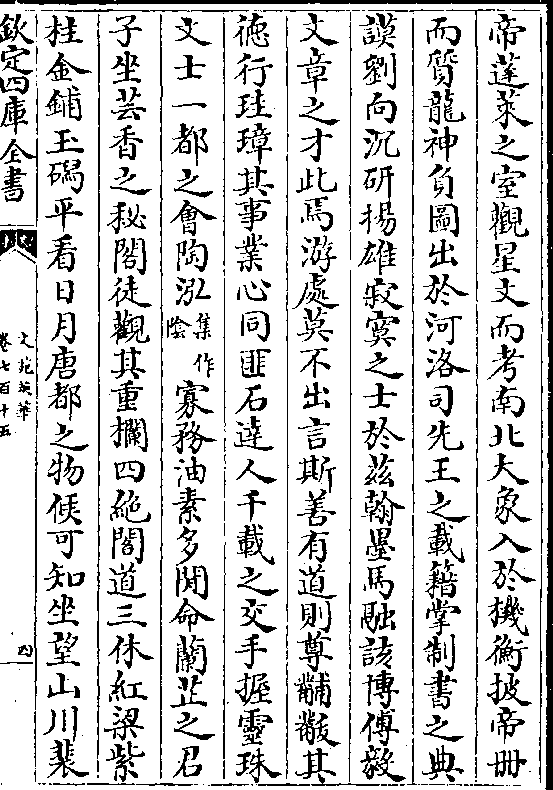 帝蓬萊之室觀星文而考南北大象入於機衡披帝冊
而質龍神負圖出於河洛司先王之載籍掌制書之典
謨劉向沉研揚雄寂寞之士於茲翰墨馬融該博傅毅
文章之才此焉游處莫不出言斯善有道則尊黼黻其
徳行珪璋其事業心同匪石達人千載之交手握靈珠
文士一都之會陶泓集作陰寡務油素多閒命蘭芷之君
子坐芸香之秘閣徒觀其重欄四絶閣道三休紅梁紫
柱金鋪玉舄平看日月唐都之物候可知坐望山川裴
欽定四庫全書
文苑英華
卷七百十五
四